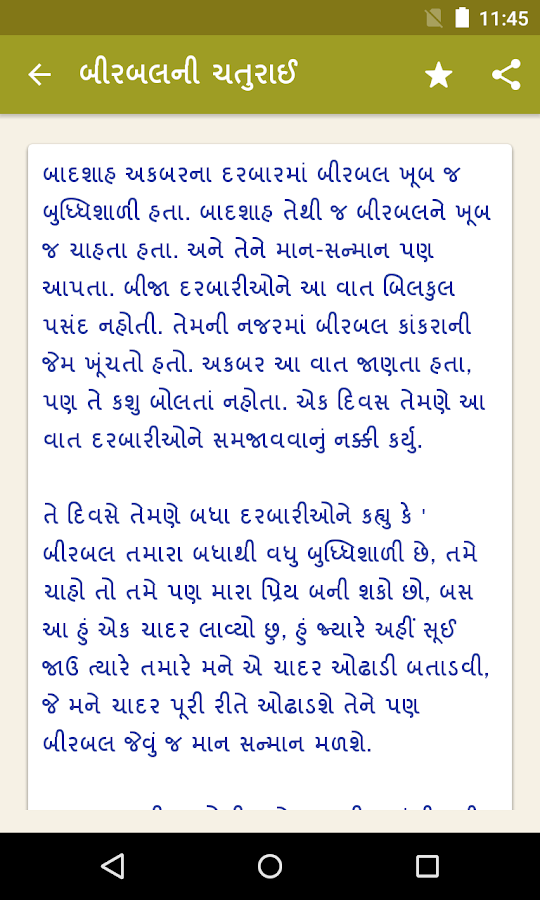 11:45
બીરબલની ચતુરાઈ
બાદશાહ અકબરના દરબારમાં બીરબલ ખૂબ જ
બુધ્ધિશાળી હતા. બાદશાહ તેથી જ બીરબલને ખૂબ
જ ચાહતા હતા. અને તેને માન-સન્માન પણ
આપતા. બીજા દરબારીઓને આ વાત બિલકુલ
પસંદ નહોતી. તેમની નજરમાં બીરબલ કાંકરાની
જેમ ખૂંચતો હતો. અકબર આ વાત જાણતા હતા,
પણ તે કશુ બોલતાં નહોતા. એક દિવસ તેમણે આ
વાત દરબારીઓને સમજાવવાનું નક્કી કર્યું.
તે દિવસે તેમણે બધા દરબારીઓને કહ્યુ કે '
બીરબલ તમારા બધાથી વધુ બુધ્ધિશાળી છે, તમે
ચાહો તો તમે પણ મારા પ્રિય બની શકો છો, બસ
આ હું એક ચાદર લાવ્યો છુ, હું જ્યારે અહીં સૂઈ
જાઉ ત્યારે તમારે મને એ ચાદર ઓઢાડી બતાડવી,
જે મને ચાદર પૂરી રીતે ઓઢાડશે તેને પણ
બીરબલ જેવું જ માન સન્માન મળશે.